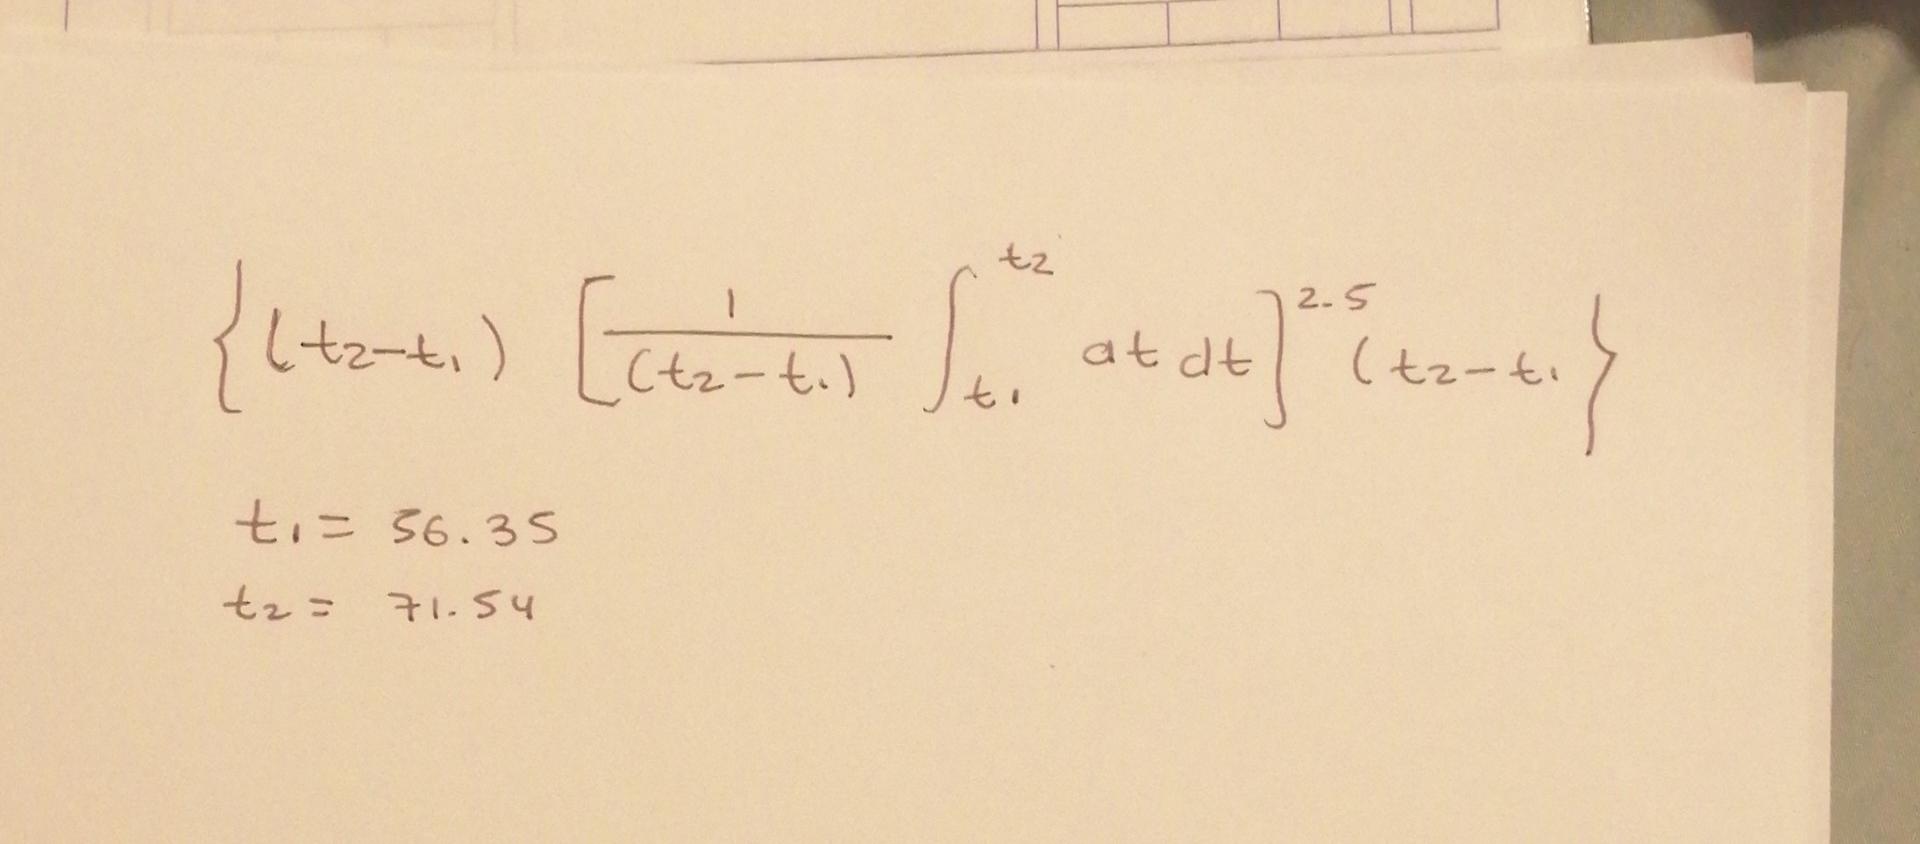 {(t₂-t₁) [1/(t₂-t₁) ∫_{t₁}^{t₂} at dt]^{2.5} (t₂-t₁}
t₁ = 56.35
t₂ = 71.54